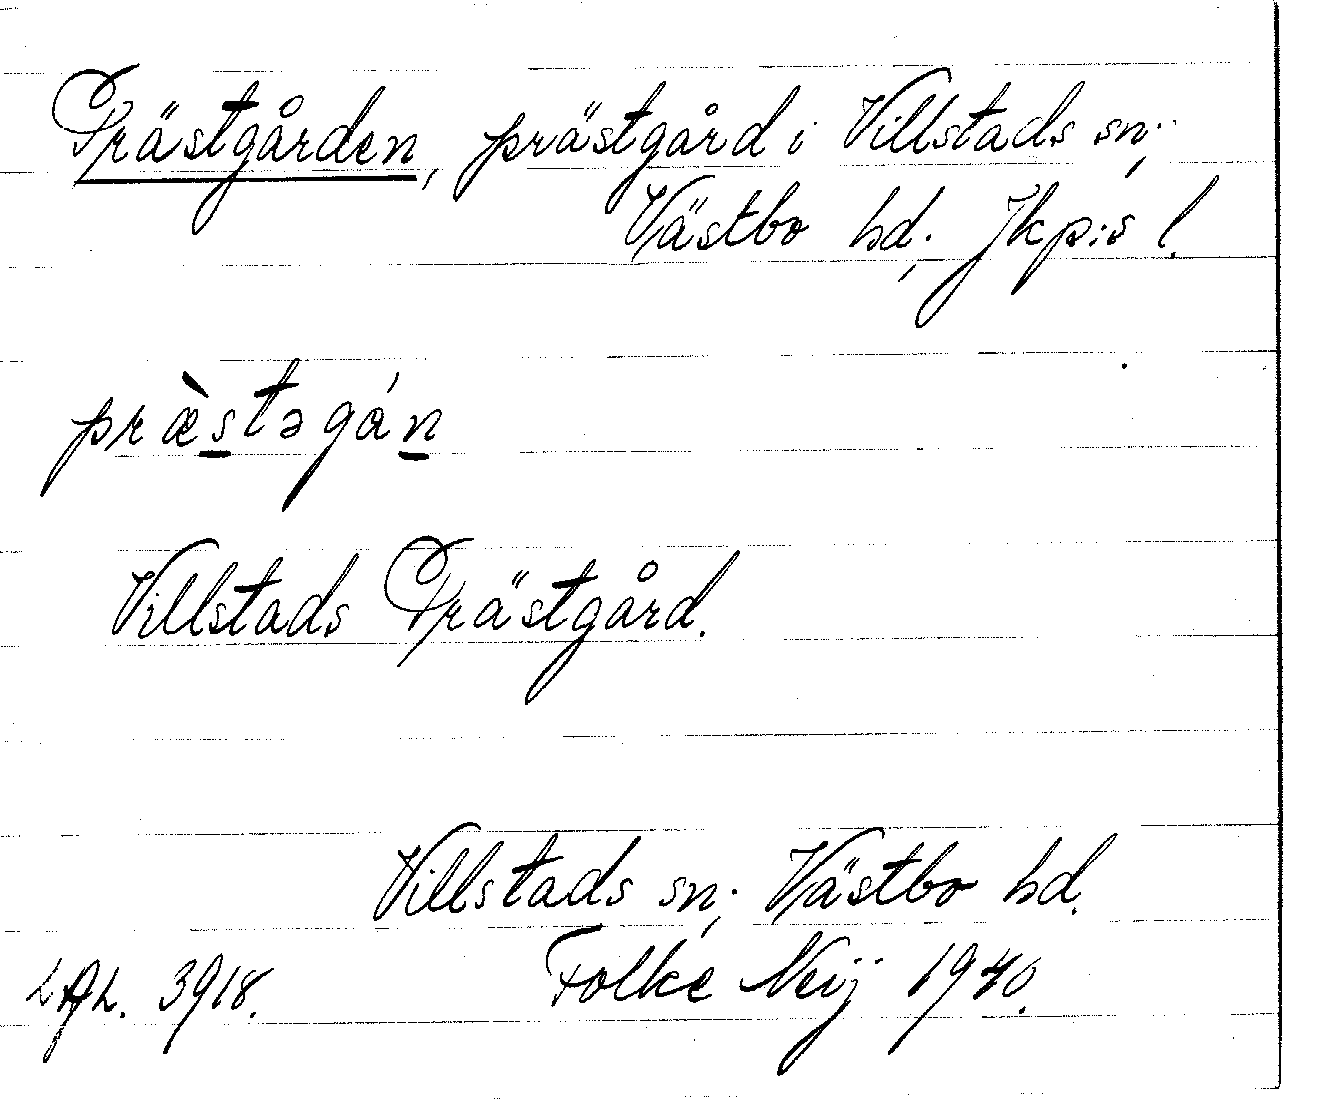 Prästgården, prästgård i Villstads sn.,
Västbo hd., Jkp:s l.
præ̀s̲təgán̲
Villstads Prästgård.
Villstads sn., Västbo hd.
Folke Neij 1940.
3918.